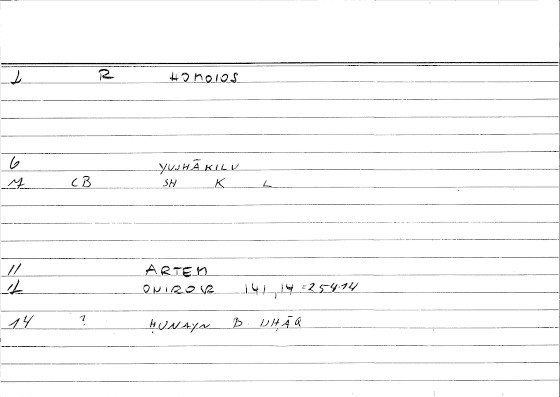 1 R HOMOIOS
6 YUSHĀKILU
7 CB SH K L
11 ARTEM
12 ONIROCR 141,14 = 254.14
14 ? ḤUNAYN B ISḤĀQ